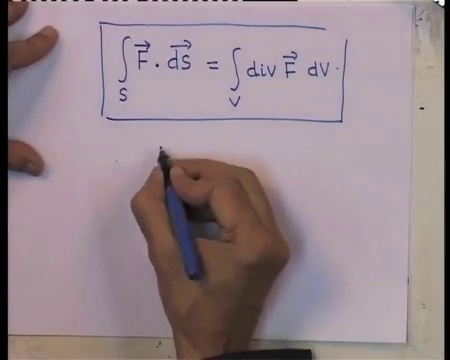 ∫_S F⃗ . d⃗S = ∫_V div F⃗ dV.